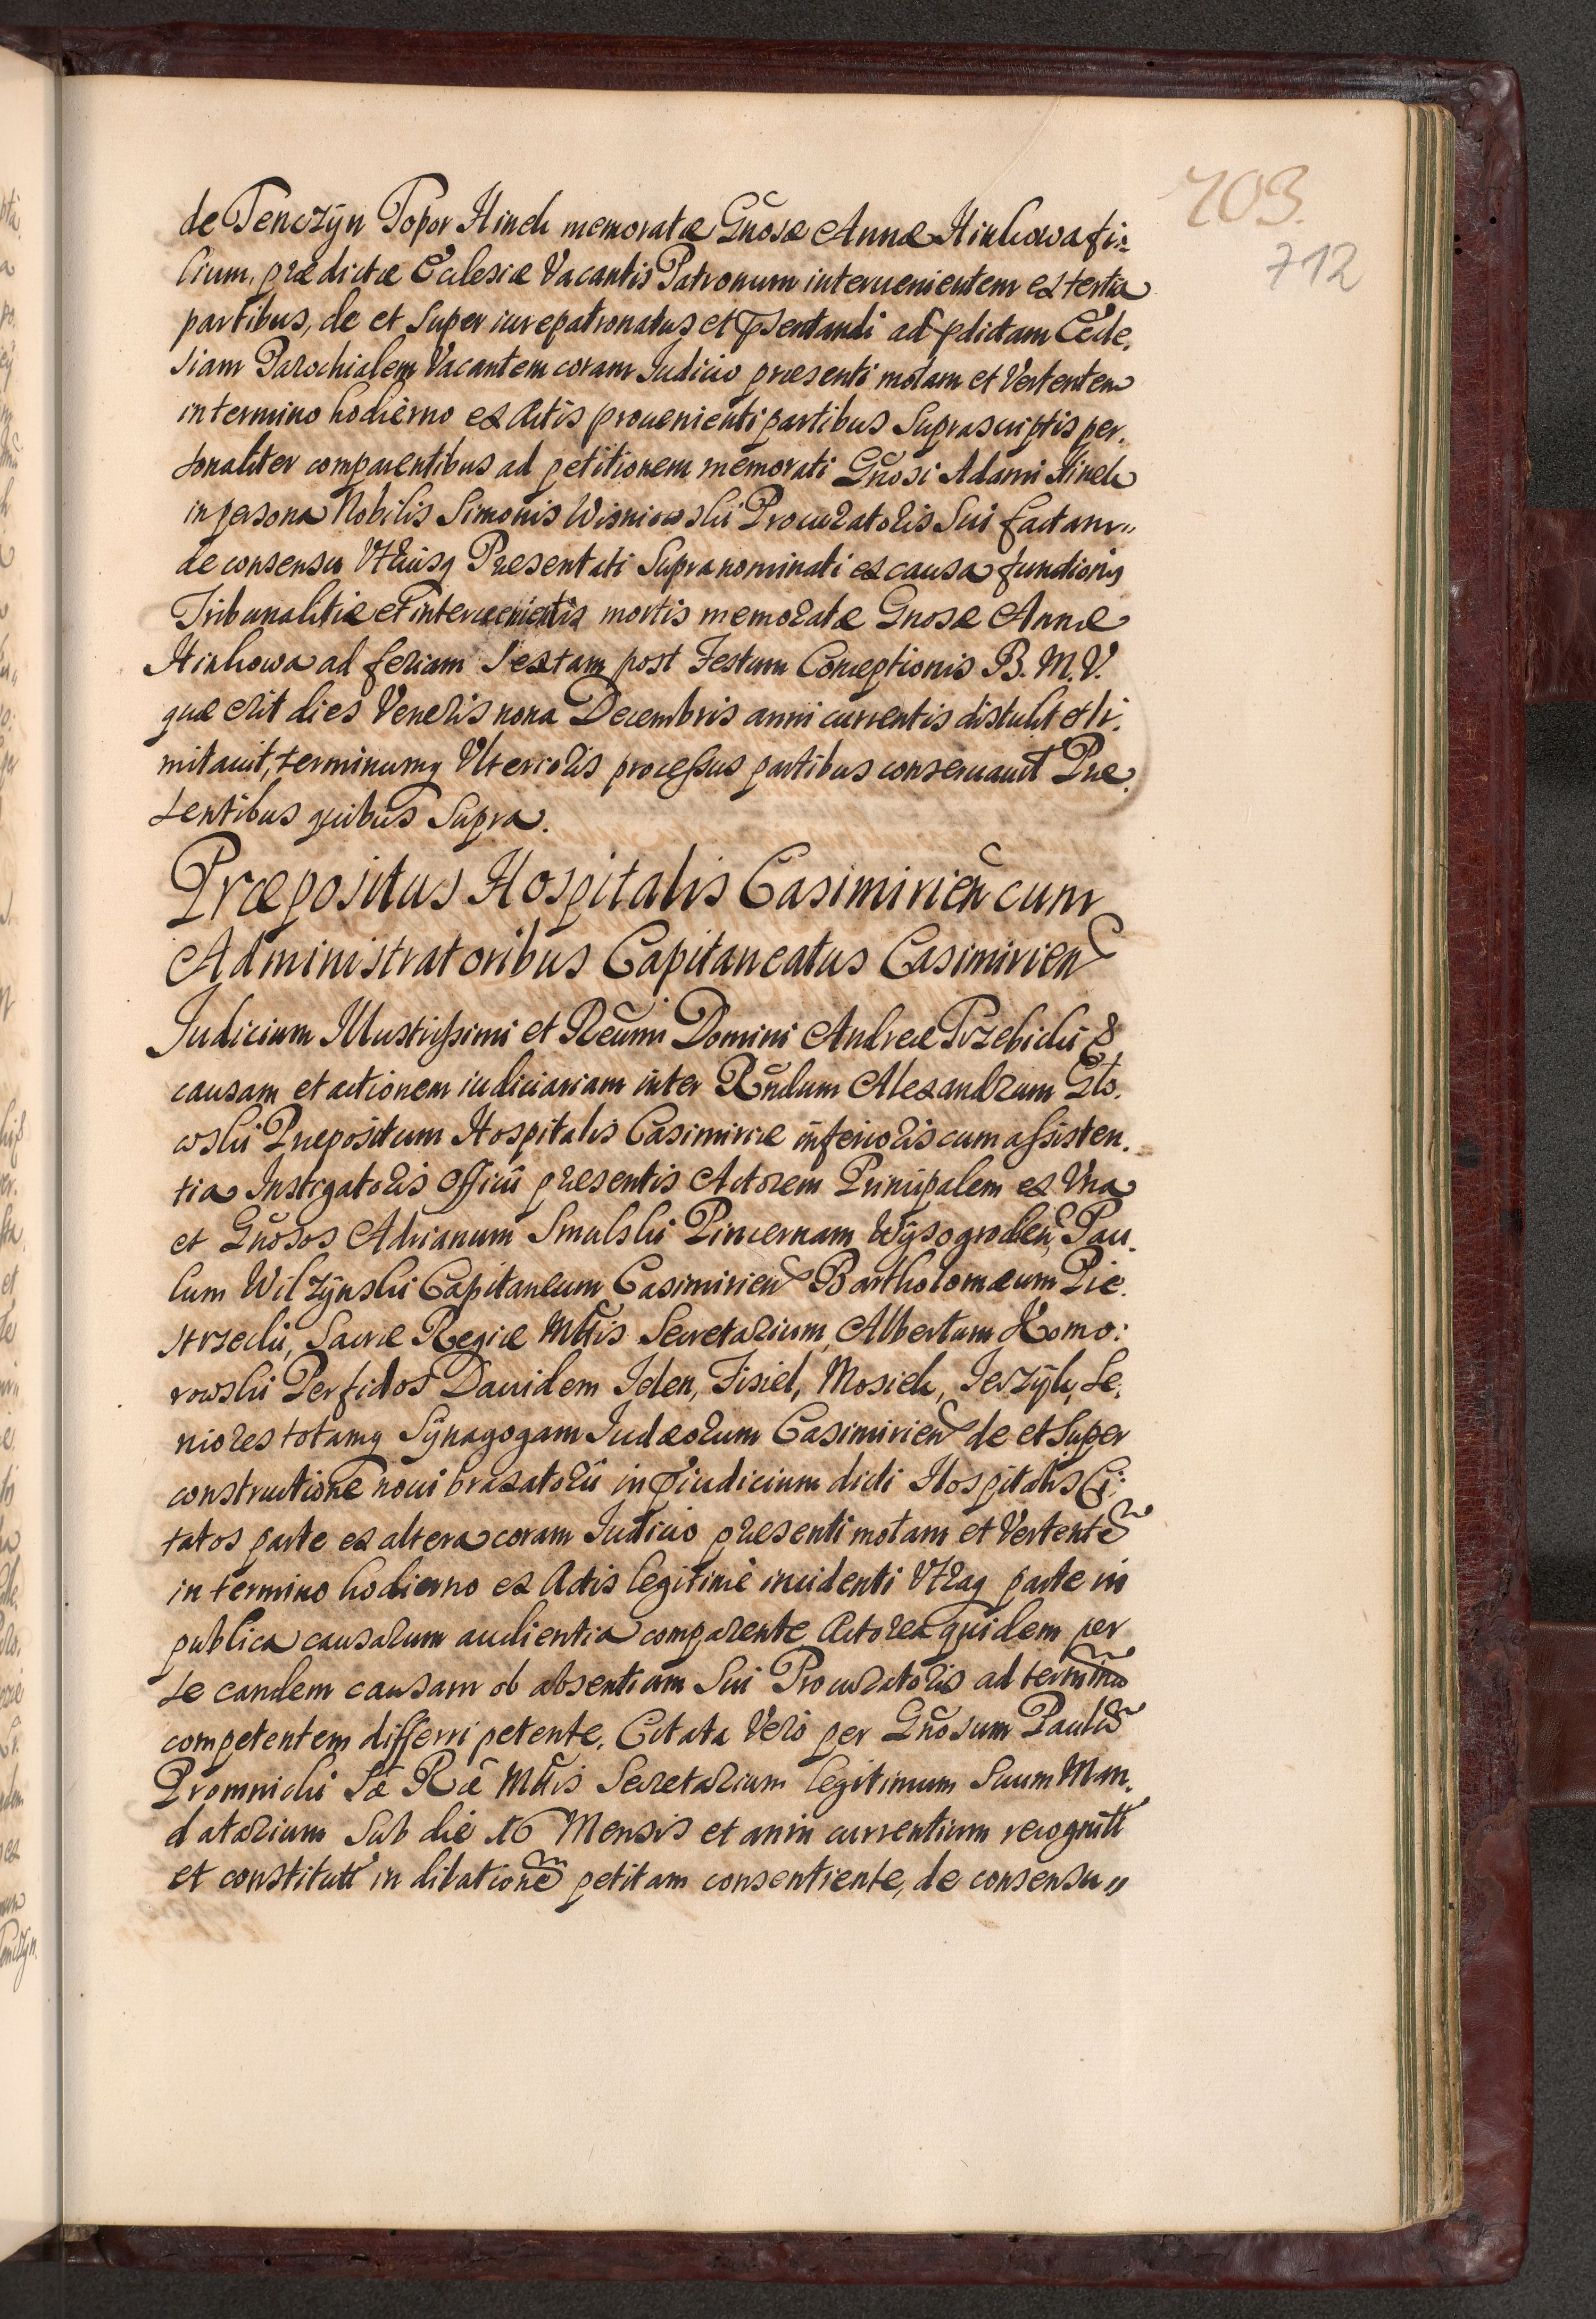 703.
712
de Tenczÿn Topor Hinek memoratæ Gñosæ Annæ Hinkowa fi:
lium, prædictæ Ecclesiæ Vacantis Patronum interuenientem ex tertia
partibus, de et super iurepatronatus et pṡentandi ad p̃dictam Eccle,
siam Parochialem Vacantem coram Iudicio præsenti motam et Vertentem
in termino hodierno ex Actis prouenienti partibus suprascriptis per,
sonaliter comparentibus ad petitionem memorati Gñosi Adami Hinek
in persona Nobilis Simonis Wisniowski Procuratoris sui factam„
de consensu Vtriusq Præsentati supranominati ex causa functionis
Tribunalitiæ et interuenientis mortis memoratæ Gnosæ Annæ
Hinkowa ad feriam sextam post Festum Conceptionis B. M. V.
quæ erit dies Veneris nona Decembris anni currentis distulit et li,
mitauit, terminumq Vlterioris processus partibus conseruauit Præ,
sentibus quibus supra.
Præpositus Hospitalis Casimirien̄ cum
Administratoribus Capitaneatus Casimirien
Iudicium Illustrissimi et Reũmi Domini Andreæ Trzebicki &
causam et actionem iudiciariam inter Rñdum Alexandrum Glo,
wski Præpositum Hospitalis Casimiriæ inferioris cum assisten,
tia Instigatoris Officii præsentis Actorem Principalem ex Vna
et Gñosos Adrianum Smulski Pincernam Wÿsogroden, Pau,
lum Wilzÿnski Capitaneum Casimirien Bartholomæum Pie,
strzecki, Sacræ Regiæ Mttis Secretarium, Albertum Komo:
rowski Perfidos Dauidem Jelen, Fisiel, Mosiek, Jerzÿk, Se,
niores totamq Sÿnagogam Iudæorum Casimirien de et super
constructione noui braxatorii in p̃iudicium dicti Hospitalis Ci:
tatos parte ex altera coram Iudicio præsenti motam et Vertentẽ
in termino hodierno ex Actis legitimè incidenti Vtraq parte in
publica causarum audientia comparente Actorea quidem per
se eandem causam ob absentiam sui Procuratoris ad terminũ
competentem differri petente, Citata Verò per Gñosum Paulũ
Promnicki Sæ Ræ Mttis Secretarium legitimum suum Man,
datarium sub die 16 Mensis et anni currentium recognitt
et constitutt in dilationẽ petitam consentiente, de consensu„